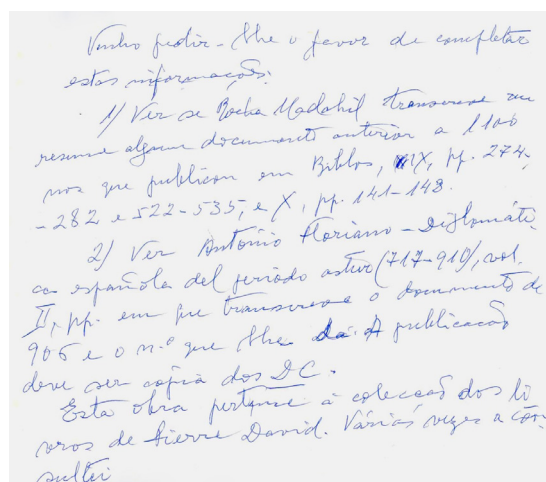 Venho pedir-lhe o favor de completar
estas informações:
1) Ver se Rocha Madahil transcreve ou
resume algum documento anterior a 1100
nos que publicou em Biblos, IX, pp. 274-
-282 e 522-535, e X, pp. 141-148.
2) Ver António Floriano - Diplomáti-
ca española del periodo astur (717-910), vol.
II, pp. em que transcreve o documento de
906 e o n.º que lhe dá. A publicação
deve ser cópia dos DC.
Esta obra pertence à colecção dos li-
vros de Pierre David. Várias vezes a con-
sultei